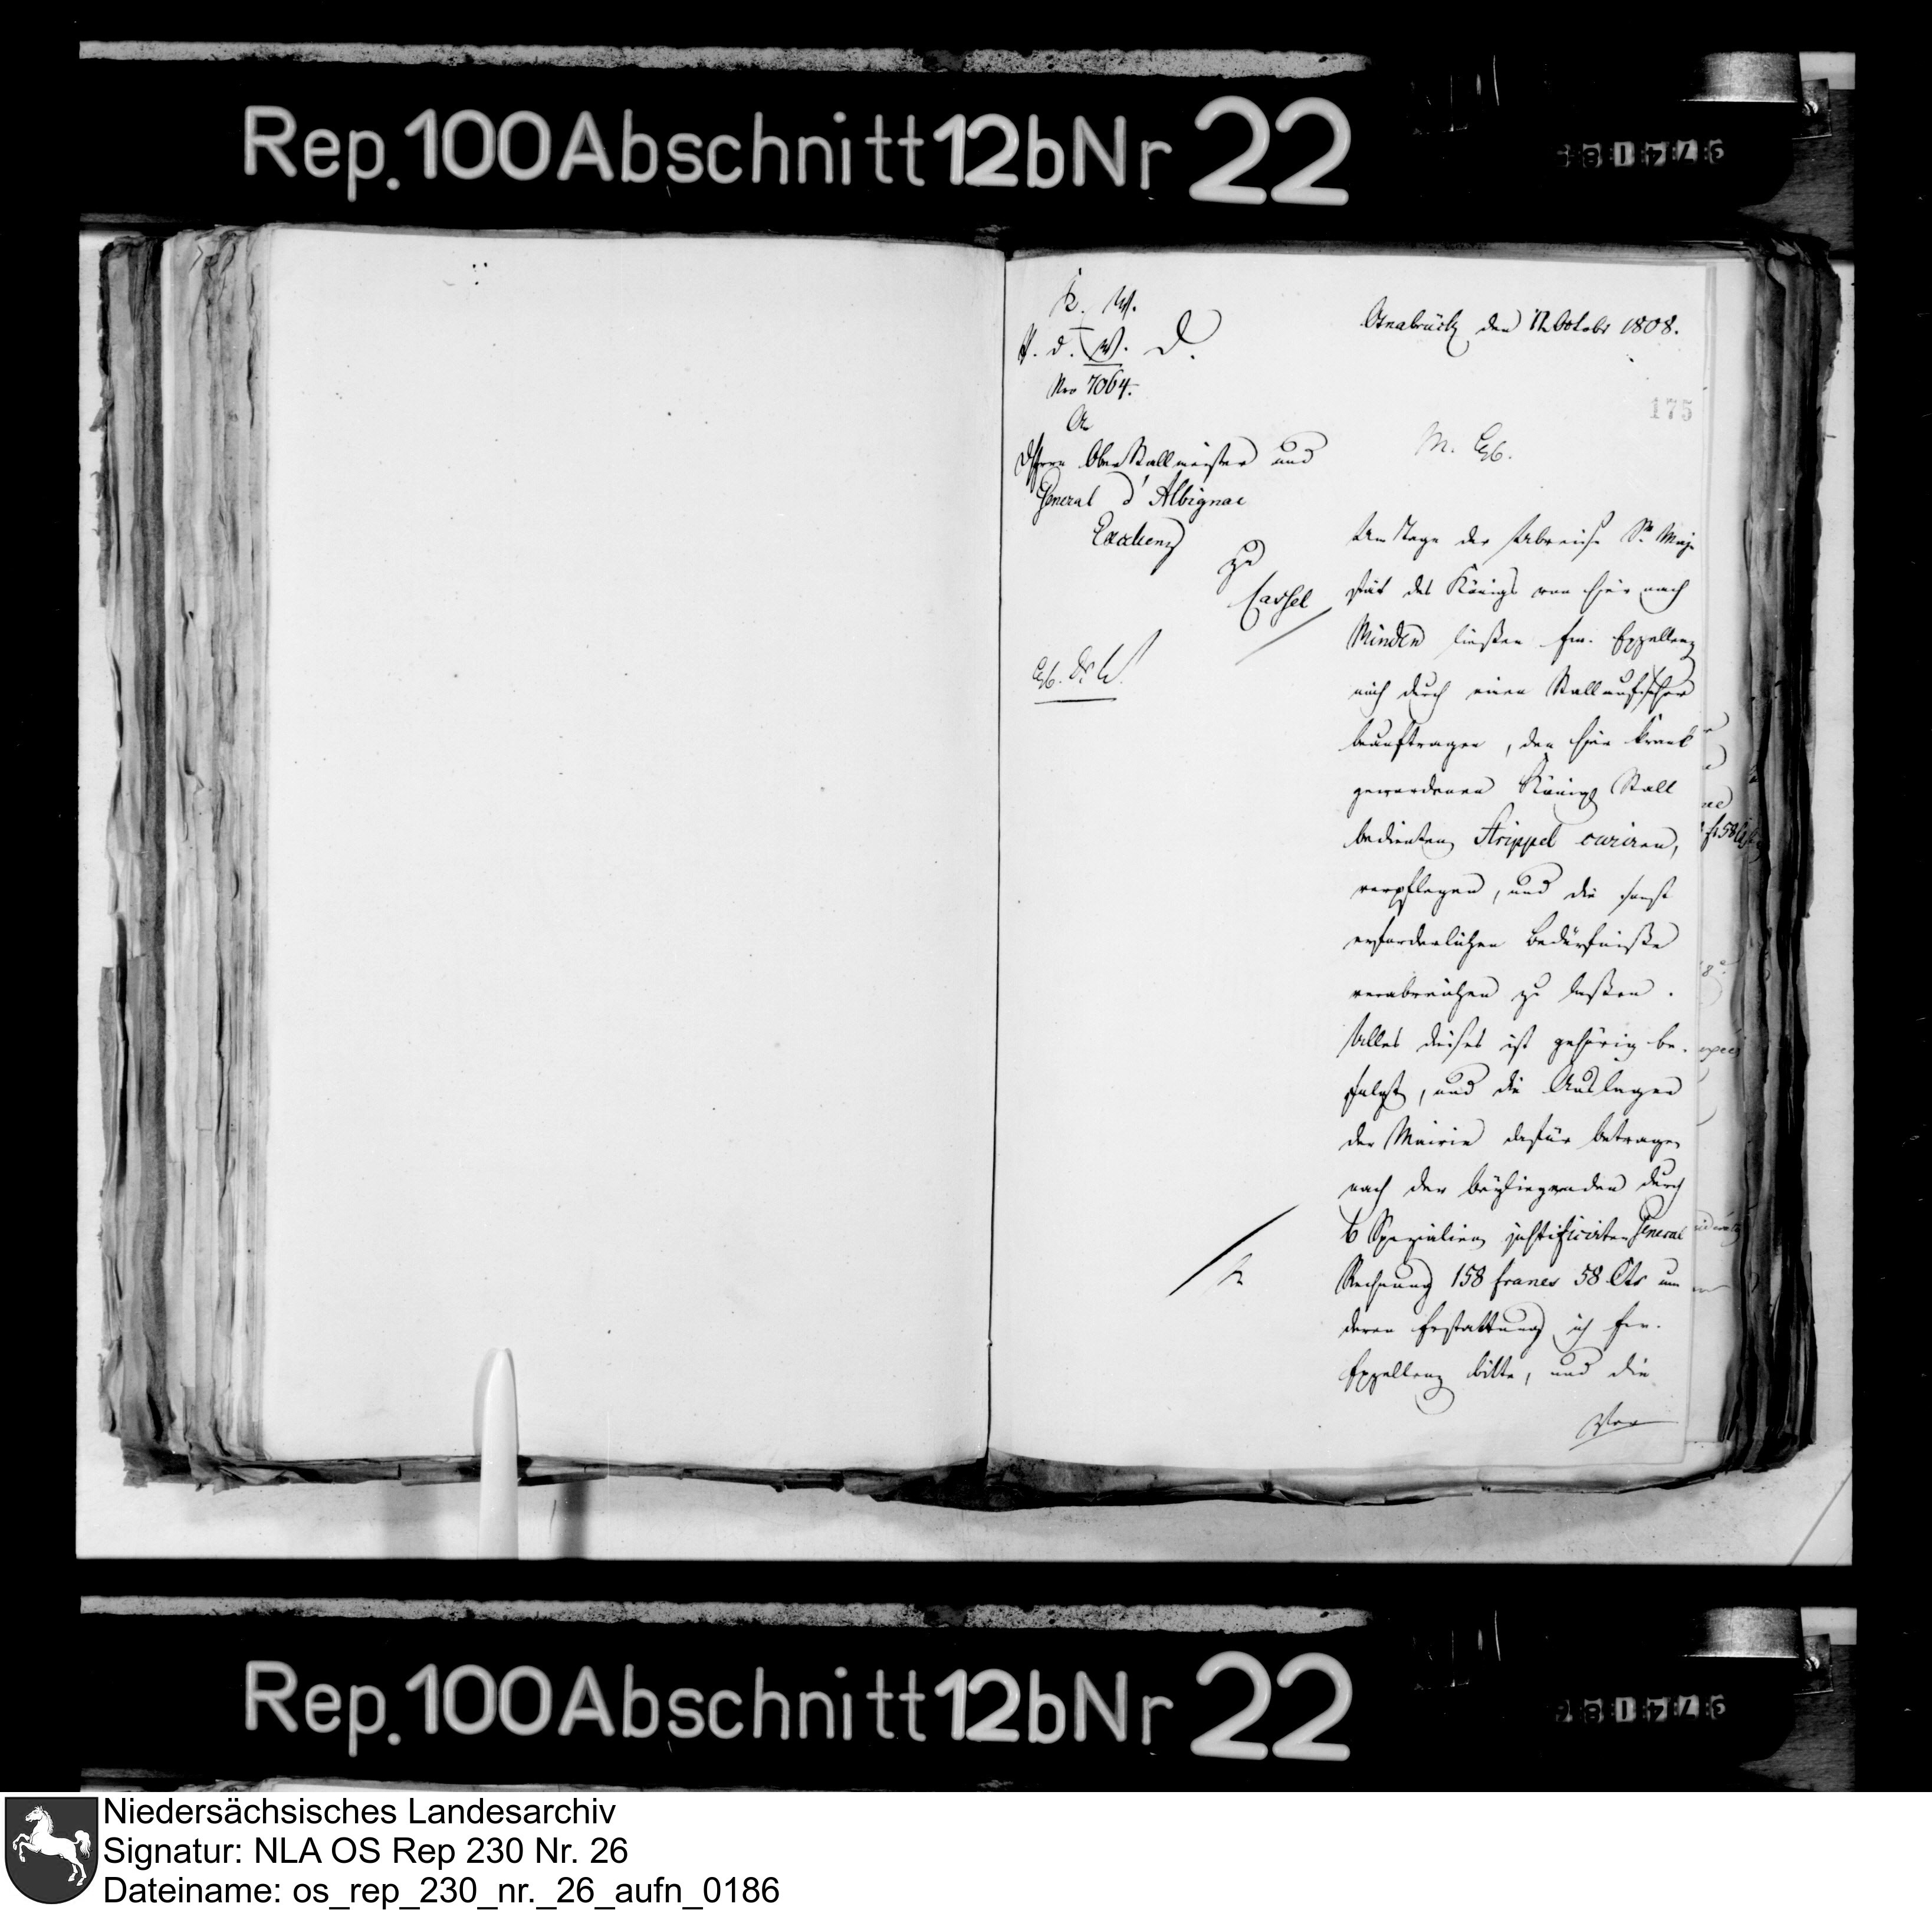 Rep. 100 Abschnitt 12b Nr 22
K. W.
P. d. W. D.
Nro 7064.
An
Osnabrück den 12. Octobr 1808.
175
Herrn Ober Stallmeister und
General d'Albignac
Excellenz
zu
Cassel
M. Eb.
Am Tage der Abreise Sr. Maje
stät des Königs von hier nach
Minden ließen Ew. Exzellenz
mich durch einen Stallaufseher
beauftragen, den hier krank
gewordenen Königl Stall
bedienten Strippel curiren,
verpflegen, und die sonst
erforderlichen Bedürfniße
verabreichen zu laßen.
Alles dieses ist gehörig be-
folgt, und die Auslagen
der Mairie dafür betragen
nach der beyliegenden durch
6 Spezialien justificirten General
Rechnung 158 francs 58 Cts um
deren Erstattung ich Ew.
Exzellenz bitte, und die
Ver
Rep. 100 Abschnitt 12b Nr 22
Niedersächsisches Landesarchiv
Signatur: NLA OS Rep 230 Nr. 26
Dateiname: os_rep_230_nr._26_aufn_0186